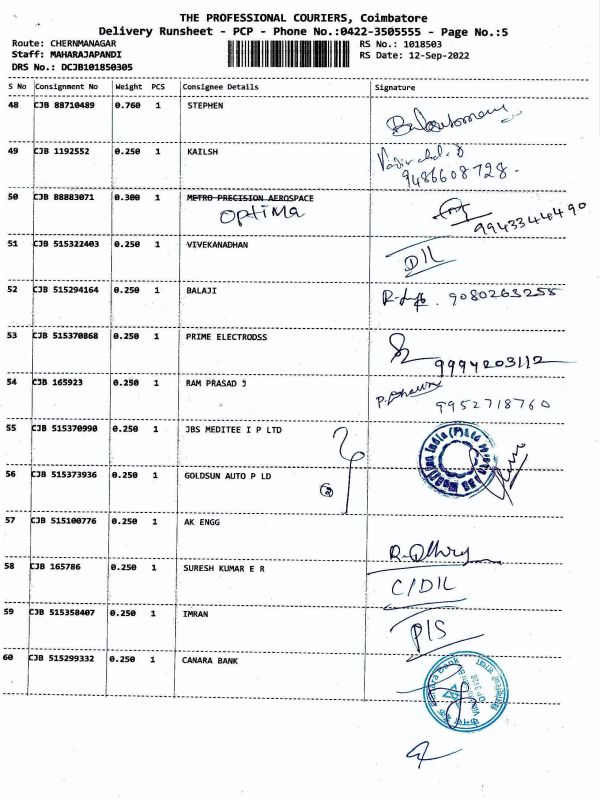 THE PROFESSIONAL COURIERS, Coimbatore
Delivery Runsheet - PCP - Phone No.:0422-3505555 - Page No.:5
Route: CHERNMANAGAR RS No.: 1018503
Staff: MAHARAJAPANDI RS Date: 12-Sep-2022
DRS No.: DCJB101850305
S No Consignment No Weight PCS Consignee Details Signature
48 CJB 88710489 0.760 1 STEPHEN
49 CJB 1192552 0.250 1 KAILSH
9486608728
50 CJB 88883071 0.300 1 METRO PRECISION AEROSPACE
OPTIMA
51 CJB 515322403 0.250 1 VIVEKANADHAN
D/L
52 CJB 515294164 0.250 1 BALAJI 9080263255
53 CJB 515370868 0.250 1 PRIME ELECTRODSS
9994203112
54 CJB 165923 0.250 1 RAM PRASAD J
9952718760
55 CJB 515370990 0.250 1 JBS MEDITEE I P LTD
56 CJB 515373936 0.250 1 GOLDSUN AUTO P LD
57 CJB 515100776 0.250 1 AK ENGG
58 CJB 165786 0.250 1 SURESH KUMAR E R
C/D/L
59 CJB 515358407 0.250 1 IMRAN
P/S
60 CJB 515299332 0.250 1 CANARA BANK